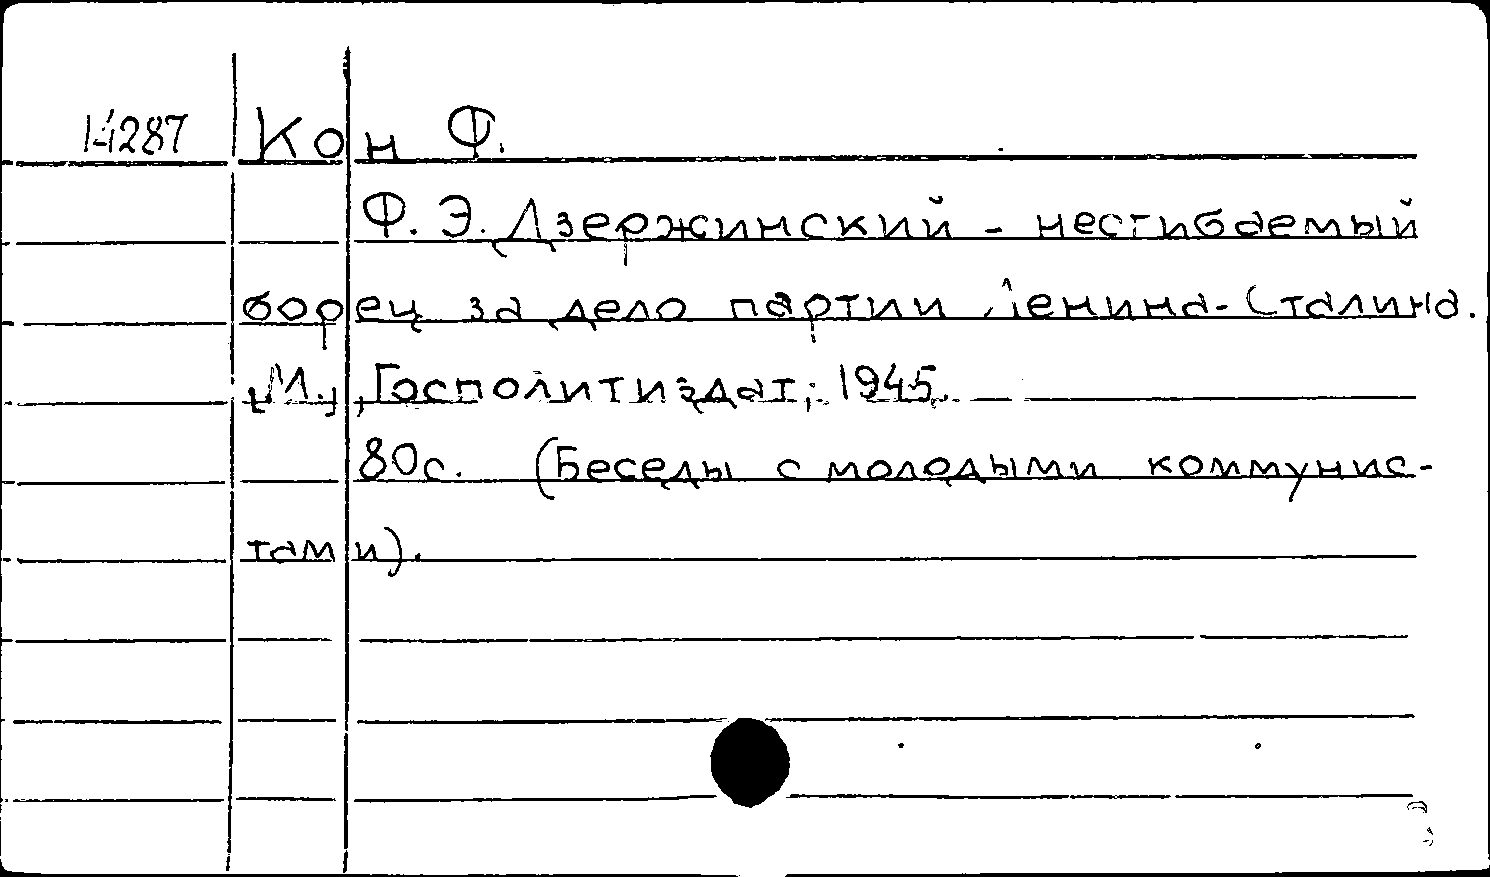 14287 Кон Ф.
Ф. Э. Дзержинский - несгибаемый
борец за дело партии Ленина-Сталина.
[М.], Госполитиздат, 1945.
80с. (Беседы с молодыми коммунис-
тами).